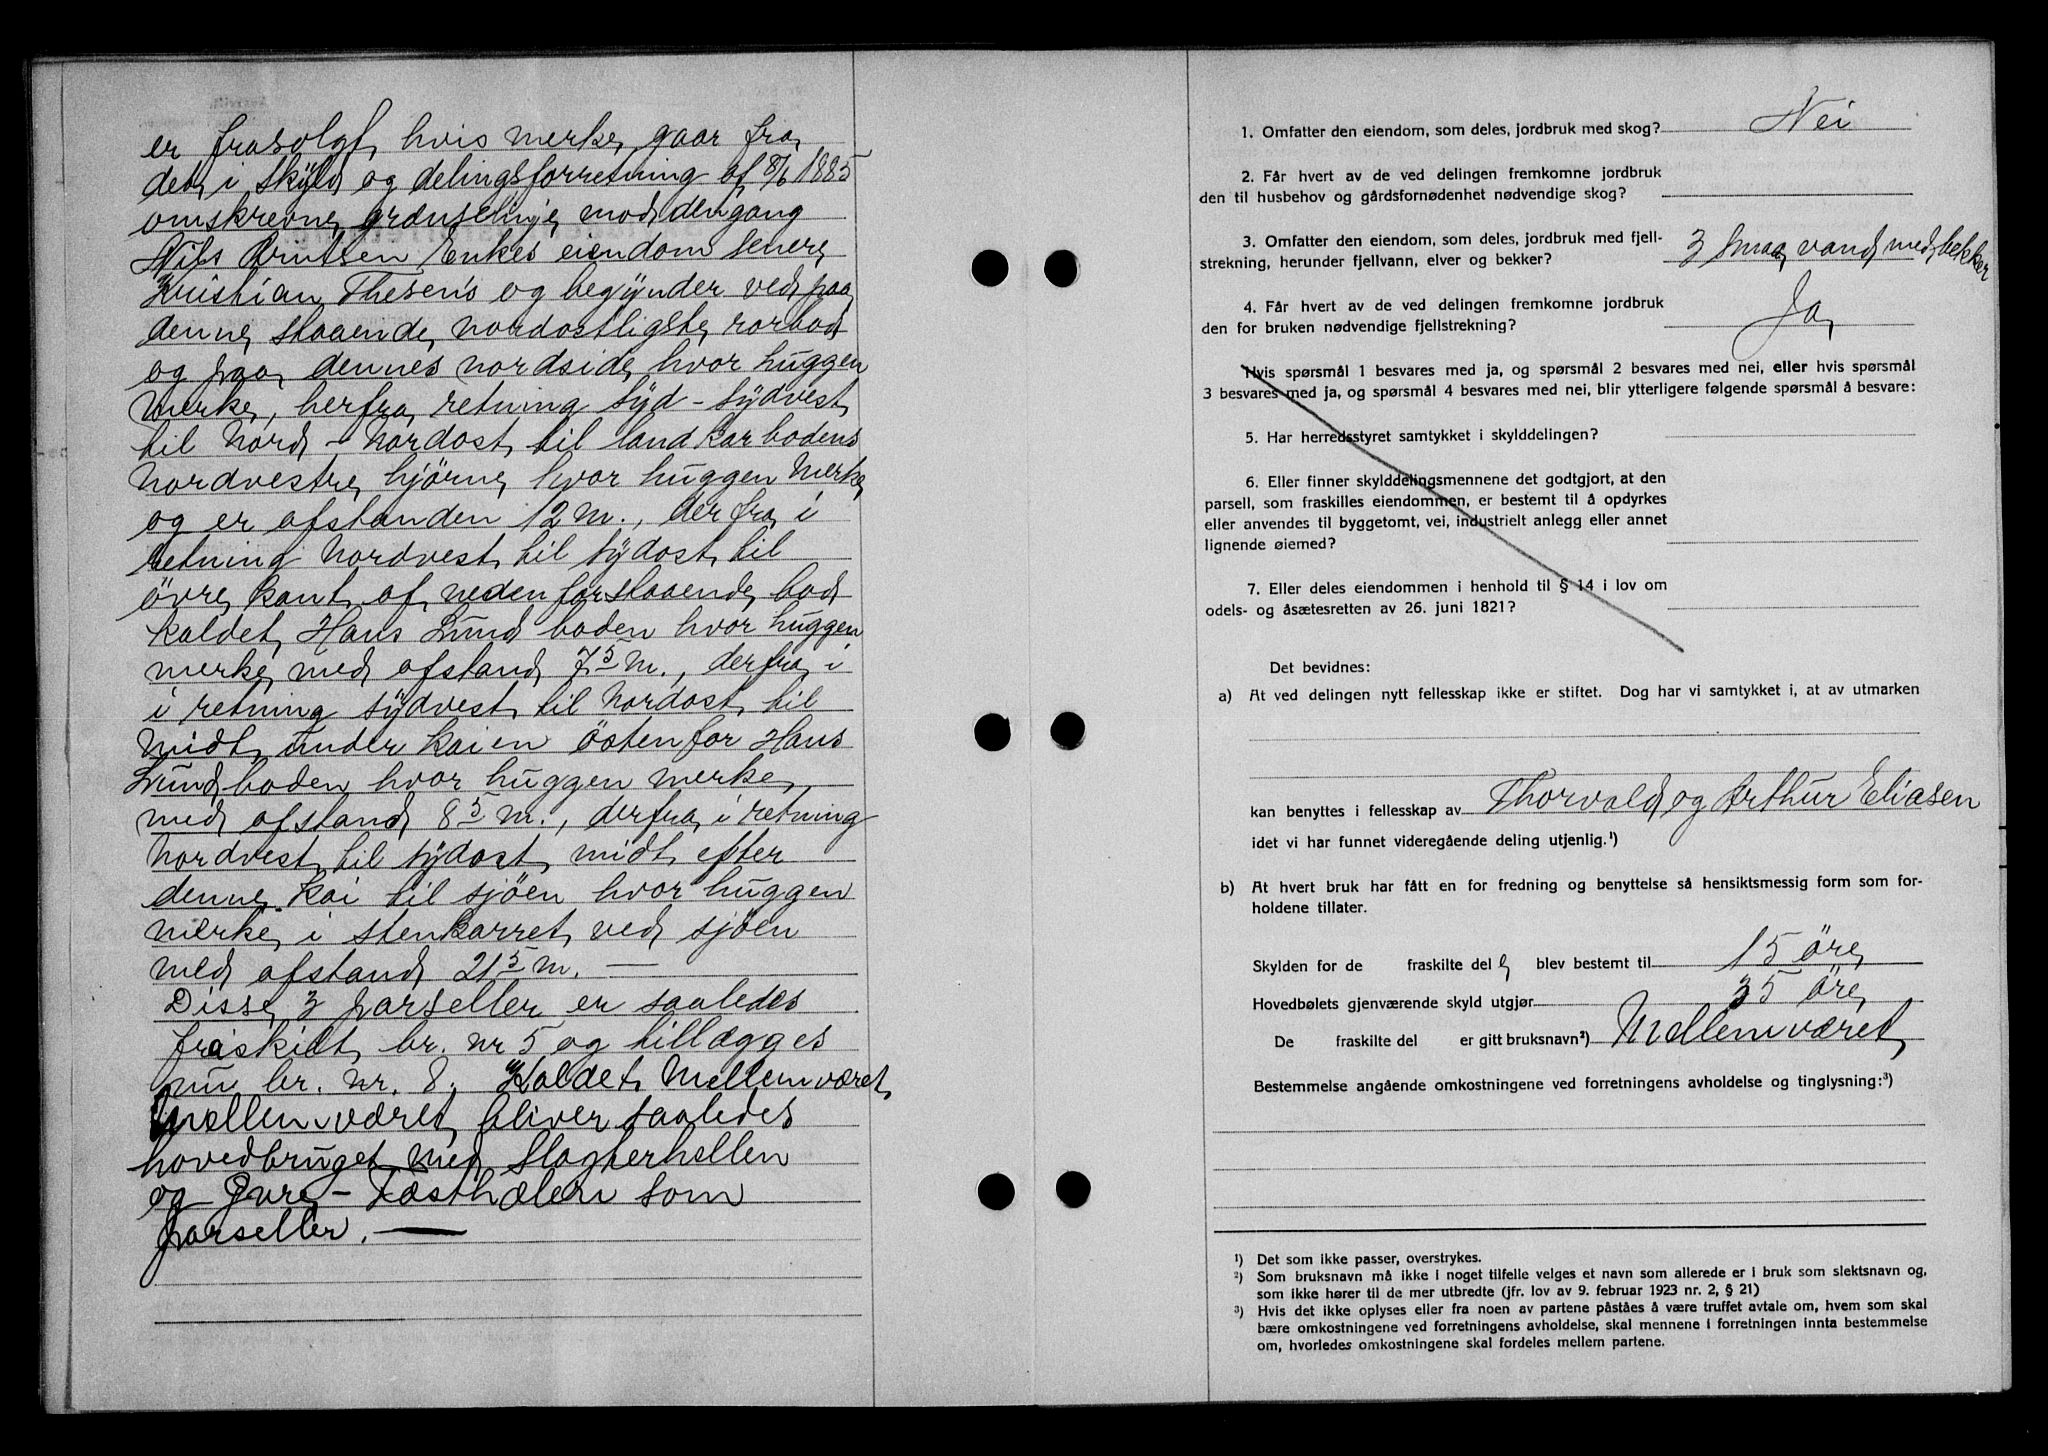 er frasolgt, hvis merke gaar fra
det i Skyld og delingsforretning af 8/6 1885
omskrevne grænselinje mod dengang
Nils Knutsen Enkes eiendom senere
Kristian Thesens og begynder ved paa
denne staaende nordostligste rorbod
og paa dennes nordside hvor huggen
merke, herfra retning Syd - Sydvest
til Nord - Nordost til landkar bodens
Nordvestre hjörne hvor huggen Merke
og er afstanden 12 m., derfra i
retning Nordvest til Sydost til
övre kant af nedenforstaaende bod
kaldet Hans Lund boden hvor huggen
merke med afstand 7 5 m., derfra i
i retning Sydvest til Nordost til
Midt under kaien östenfor Hans
Lund boden hvor huggen merke
med afstand 8 5 m., derfra i retning
Nordvest til Sydost midt efter
denne kai til sjöen hvor huggen
merke i stenkarret ved sjöen
med afstand 21 5 m. —
Disse 3 parseller er saaledes
fraskilt br. nr 5 og tillægges
nu br. nr. 8. Kaldet Mellemværet
Mellemværet bliver saaledes
hovedbruget med Slagterhellen
og Øvre - Fæsthælen som
parseller. —
1. Omfatter den eiendom, som deles, jordbruk med skog? Nei
2. Får hvert av de ved delingen fremkomne jordbruk
den til husbehov og gårdsfornødenhet nødvendige skog?
3. Omfatter den eiendom, som deles, jordbruk med fjell-
strekning, herunder fjellvann, elver og bekker? 3 Smaa vand med bekker
4. Får hvert av de ved delingen fremkomne jordbruk
den for bruken nødvendige fjellstrekning? Ja
Hvis spørsmål 1 besvares med ja, og spørsmål 2 besvares med nei, eller hvis spørsmål
3 besvares med ja, og spørsmål 4 besvares med nei, blir ytterligere følgende spørsmål å besvare:
5. Har herredsstyret samtykket i skylddelingen?
6. Eller finner skylddelingsmennene det godtgjort, at den
parsell, som fraskilles eiendommen, er bestemt til å opdyrkes
eller anvendes til byggetomt, vei, industrielt anlegg eller annet
lignende øiemed?
7. Eller deles eiendommen i henhold til § 14 i lov om
odels- og åsætesretten av 26. juni 1821?
Det bevidnes:
a) At ved delingen nytt fellesskap ikke er stiftet. Dog har vi samtykket i, at av utmarken
kan benyttes i fellesskap av Thorvald og Arthur Eliasen
idet vi har funnet videregående deling utjenlig.¹)
b) At hvert bruk har fått en for fredning og benyttelse så hensiktsmessig form som for-
holdene tillater.
Skylden for de fraskilte del e blev bestemt til 15 öre
Hovedbølets gjenværende skyld utgjør 35 öre
De fraskilte del er gitt bruksnavn²) Mellemværet
Bestemmelse angående omkostningene ved forretningens avholdelse og tinglysning:³)
¹) Det som ikke passer, overstrykes.
²) Som bruksnavn må ikke i noget tilfelle velges et navn som allerede er i bruk som slektsnavn og,
som ikke hører til de mer utbredte (jfr. lov av 9. februar 1923 nr. 2, § 21)
³) Hvis det ikke oplyses eller fra noen av partene påståes å være truffet avtale om, hvem som skal
bære omkostningene ved forretningens avholdelse, skal mennene i forretningen innta bestemmelse
om, hvorledes omkostningene skal fordeles mellem partene.